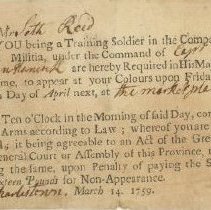 Mr Seth Reed
YOU being a Training Soldier in the Compa
Militia, under the Command of Capt
are hereby Required in His Ma
me, to appear at your Colours upon Friday
Day of April next, at the marketpla
Ten o'Clock in the Morning of said Day, com
Arms according to Law; whereof you are
, it being agreeable to an Act of the Gre
General Court or Assembly of this Province,
ing the same, upon Penalty of paying the S
teen Pounds for Non-Appearance.
Charlestown, March 14, 1759.